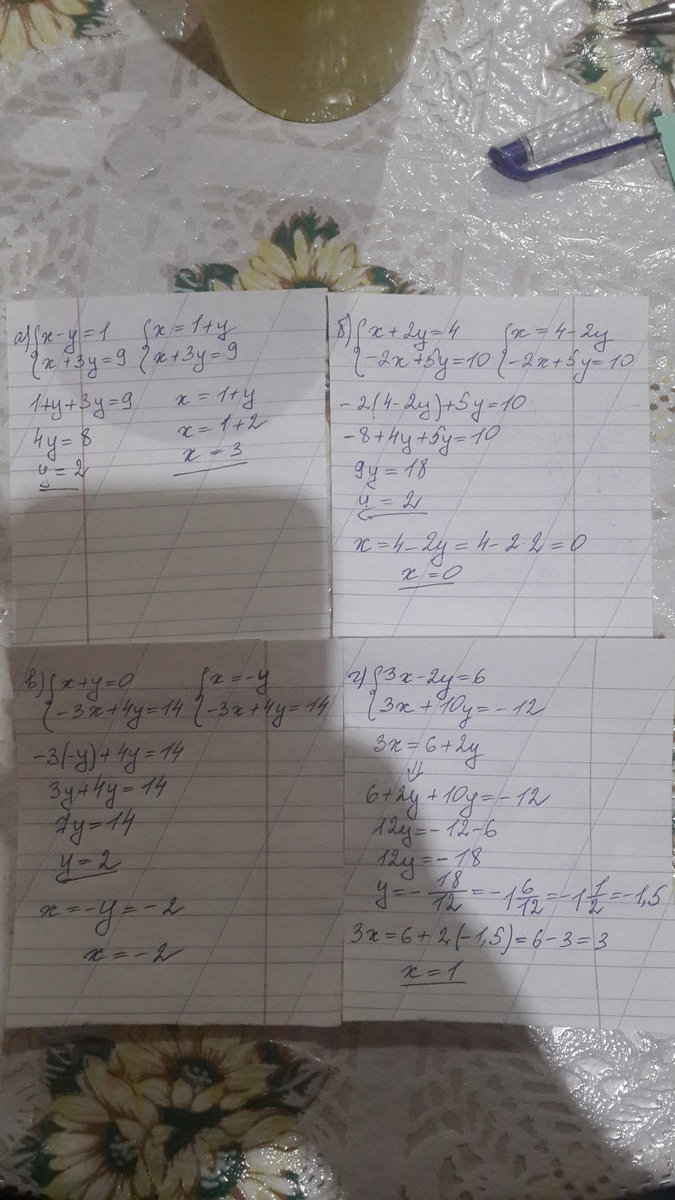 а) {x-y=1 {x=1+y
{x+3y=9 {x+3y=9
1+y+3y=9 x=1+y
4y=8 x=1+2
y=2 x=3
б) {x+2y=4 {x=4-2y
{-2x+5y=10 {-2x+5y=10
-2(4-2y)+5y=10
-8+4y+5y=10
9y=18
y=2
x=4-2y=4-2·2=0
x=0
в) {x+y=0 {x=-y
{-3x+4y=14 {-3x+4y=14
-3(-y)+4y=14
3y+4y=14
7y=14
y=2
x=-y=-2
x=-2
г) {3x-2y=6
{3x+10y=-12
3x=6+2y
⇓
6+2y+10y=-12
12y=-12-6
12y=-18
y=-18/12=-1 6/12=-1 1/2=-1,5
3x=6+2(-1,5)=6-3=3
x=1